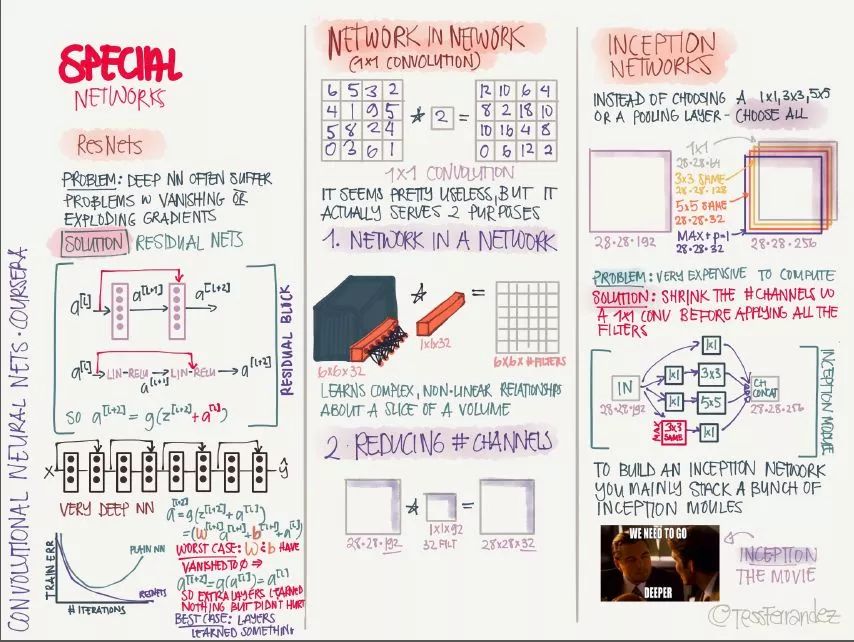 CONVOLUTIONAL NEURAL NETS · COURSERA
SPECIAL
NETWORKS
ResNets
PROBLEM: DEEP NN OFTEN SUFFER
PROBLEMS W VANISHING OR
EXPLODING GRADIENTS
SOLUTION RESIDUAL NETS
a[l] a[l+1] a[l+2]
a[l] LIN-RELU LIN-RELU a[l+2]
a[l+1]
SO a[l+2] = g(z[l+2] + a[l])
RESIDUAL BLOCK
X ŷ
VERY DEEP NN
a[l+2] = g(z[l+2] + a[l])
= (W[l+2] a[l+1] + b[l+2] + a[l])
WORST CASE: W & b HAVE
VANISHED TO 0 ⇒
a[l+2] = g(a[l]) = a[l]
SO EXTRA LAYERS LEARNED
NOTHING BUT DIDNT HURT
BEST CASE: LAYERS
LEARNED SOMETHING
TRAIN ERR
PLAIN NN
RESNETS
# ITERATIONS
NETWORK IN NETWORK
(1x1 CONVOLUTION)
6 5 3 2 12 10 6 4
4 1 9 5 * 2 = 8 2 18 10
5 8 2 4 10 16 4 8
0 3 6 1 0 6 12 2
1x1 CONVOLUTION
IT SEEMS PRETTY USELESS, BUT IT
ACTUALLY SERVES 2 PURPOSES
1. NETWORK IN A NETWORK
* =
6x6x32 1x1x32 6x6x # FILTERS
LEARNS COMPLEX, NON-LINEAR RELATIONSHIPS
ABOUT A SLICE OF A VOLUME
2. REDUCING # CHANNELS
* =
28·28·192 1x1x192 28x28x32
32 FILT
INCEPTION
NETWORKS
INSTEAD OF CHOOSING A 1x1, 3x3, 5x5
OR A POOLING LAYER - CHOOSE ALL
1x1
28·28·64
3x3 SAME
28·28·128
5x5 SAME
28·28·32
MAX + p=1
28·28·32
28·28·192 28·28·256
PROBLEM: VERY EXPENSIVE TO COMPUTE
SOLUTION: SHRINK THE # CHANNELS W
A 1x1 CONV BEFORE APPLYING ALL THE
FILTERS
1x1
IN 1x1 3x3 CH CONCAT
28·28·192 1x1 5x5 28·28·256
MAX 3x3 SAME 1x1
INCEPTION MODULE
TO BUILD AN INCEPTION NETWORK
YOU MAINLY STACK A BUNCH OF
INCEPTION MOULES
WE NEED TO GO
DEEPER
INCEPTION
THE MOVIE
@TessFerrandez